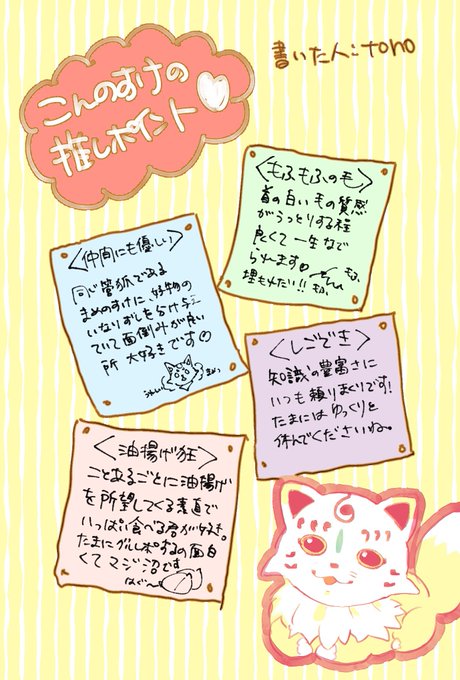 書いた人:tono
こんのすけの
推しポイント
<もふもふの毛>
首の白い毛の質感
がうっとりする程
良くて一生なで
られます
埋もれたい!!
<仲間にも優しい>
同じ管狐である
まめのすけに、好物の
いなりずしを分け与え
ていて面倒みが良い
所 大好きです♡
<しごでき>
知識の豊富さに
いつも頼りまくりです!
たまにはゆっくりと
休んでくださいね。
<油揚げ狂>
ことあるごとに油揚げ
を所望してくる素直で
いっぱい食べる君が好き。
たまにグルレポするの面白
くてマジ沼です